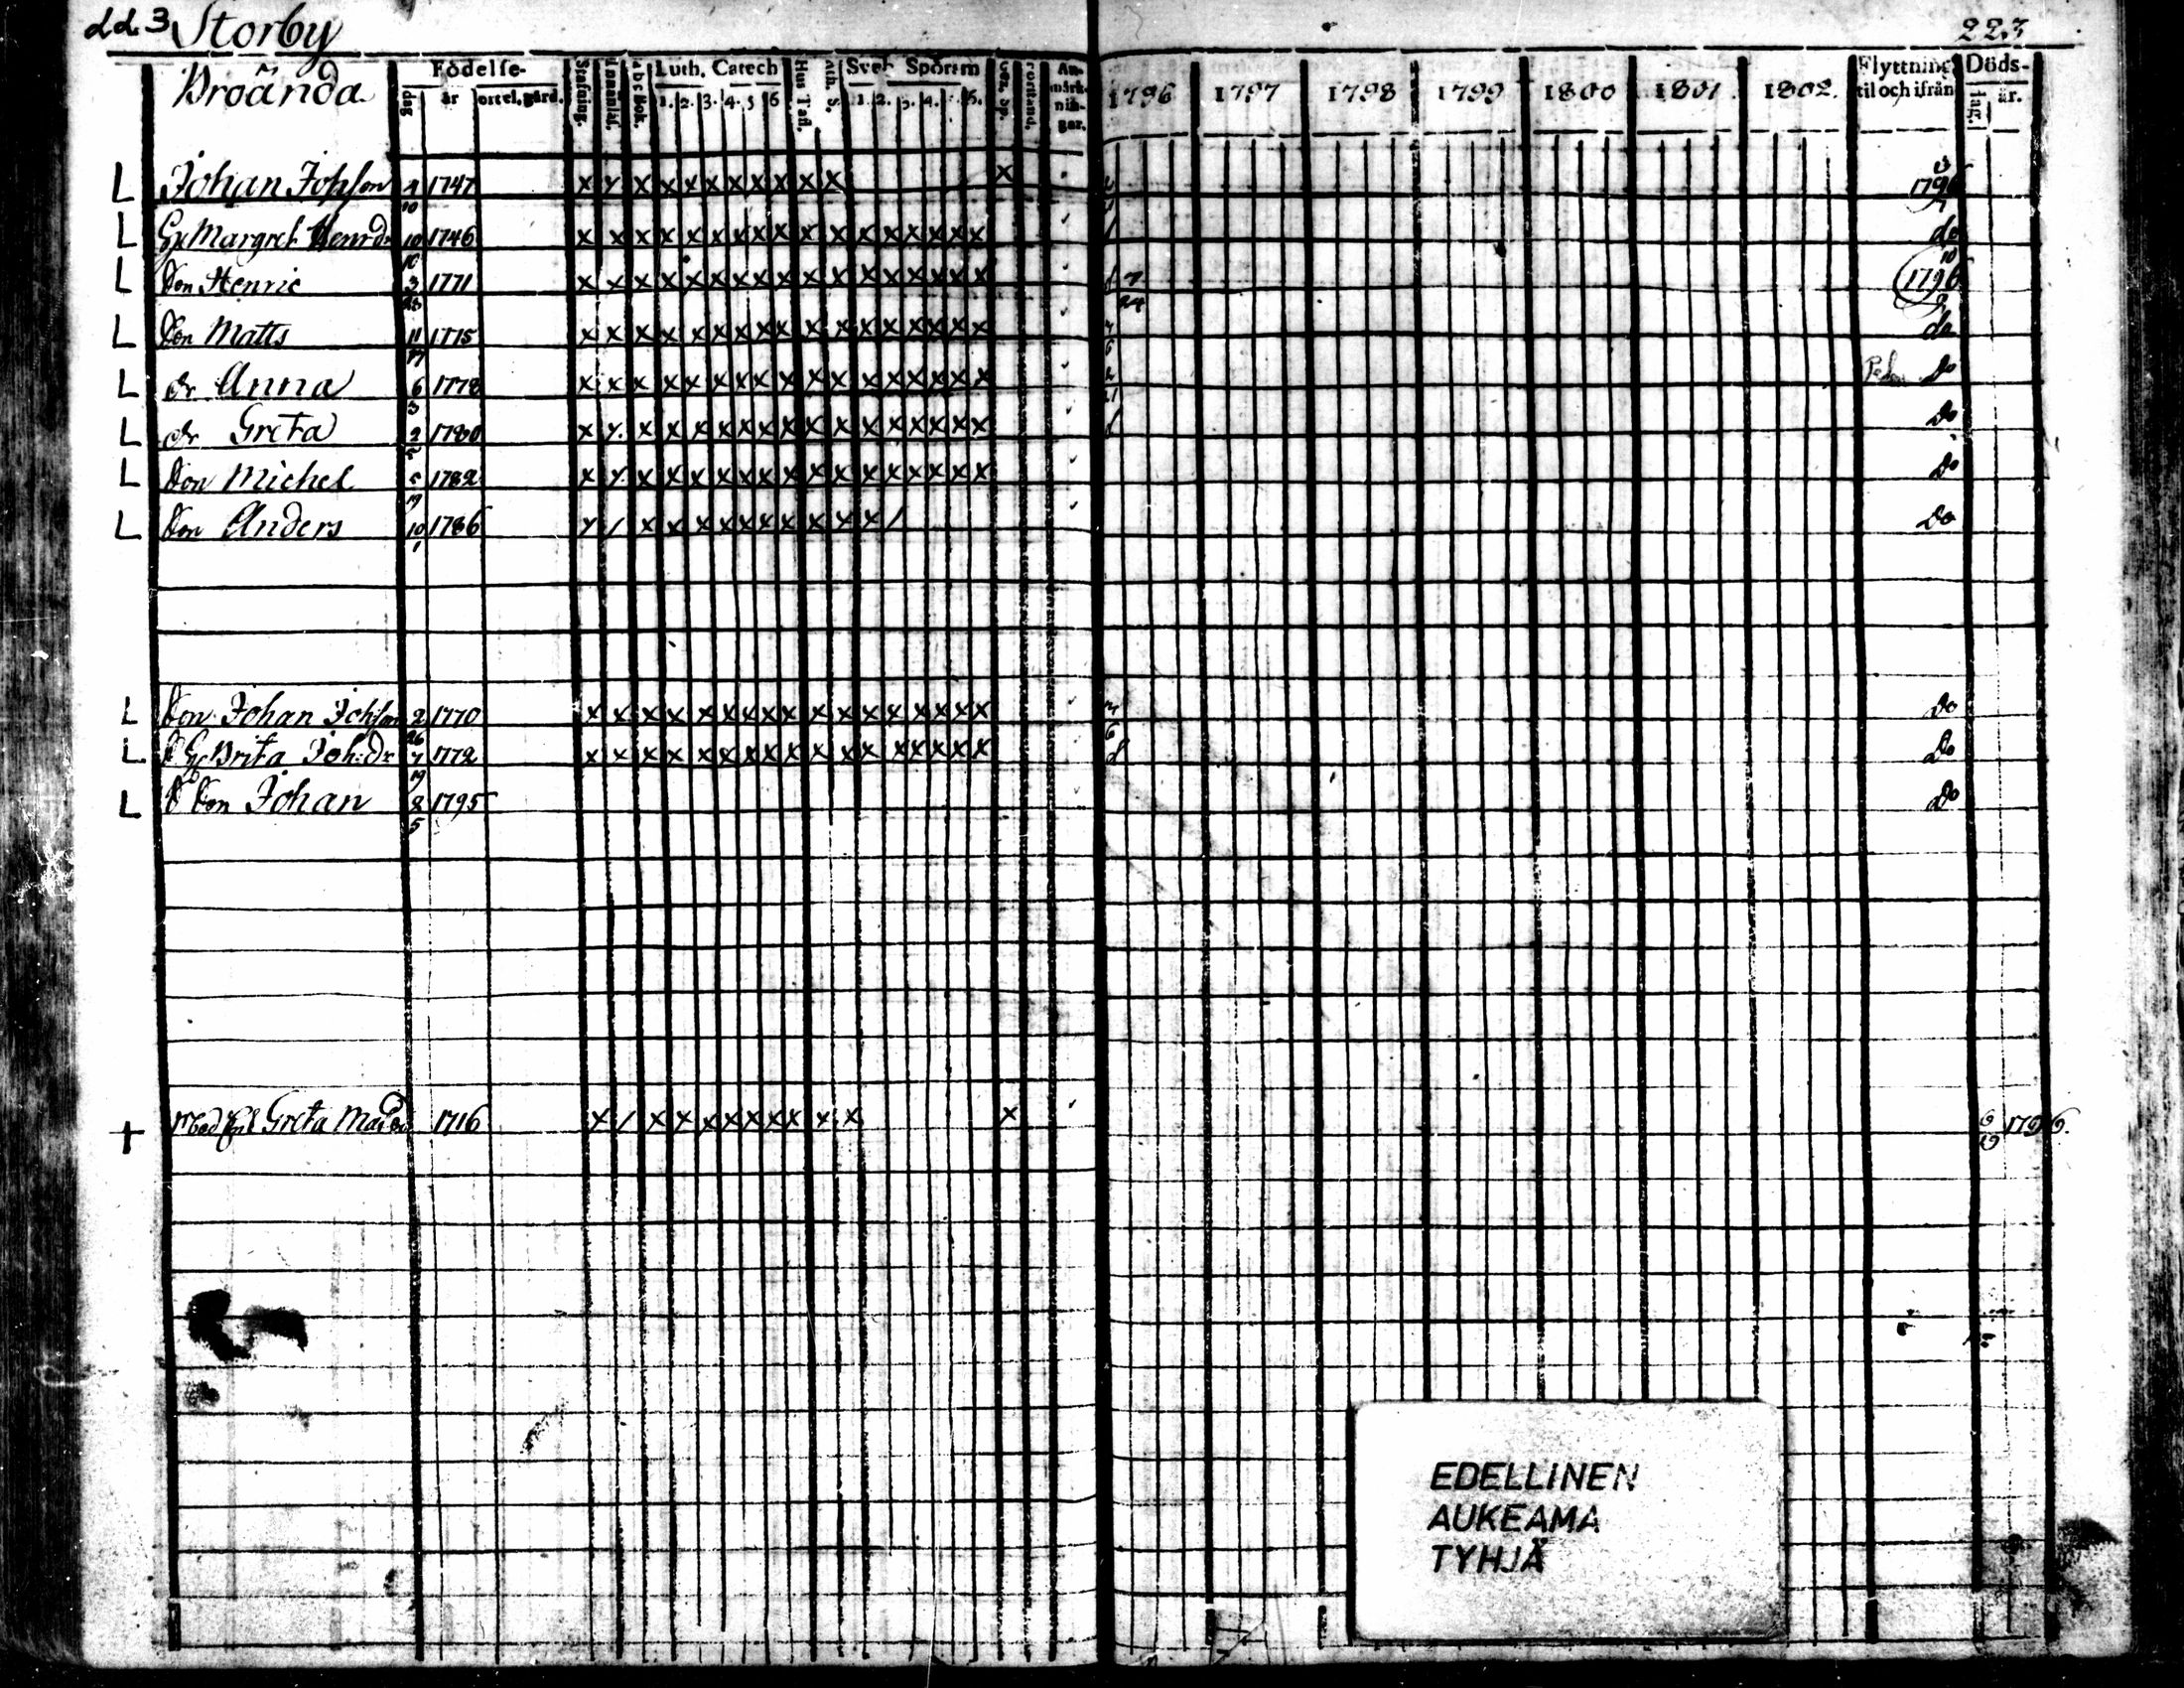 223 Storby 223
Broända
Födelse-
dag år ort el. gård.
Stafning. Innanläs. Abc bok. Luth. Catech 1. 2. 3. 4. 5 6 Hus Tafl. Ath. S. Sveb. Spörsm 1. 2. 3. 4. 5. 6.
An-märk-nin-gar.
1796 1797 1798 1799 1800 1801 1802
Flyttning til och ifrån
Döds-
dag. år.
L Johan Johsson 4 10 1747 x x x x x x x x x x x x x 3 1796 7
L Margret Henrdr 10 10 1746 x x x x x x x x x x x x x x x x x x do
L Son Henric 3 23 1771 x x x x x x x x x x x x x x x x x x 7 24 10 1796 9
L Son Matts 11 17 1775 x x x x x x x x x x x x x x x x x x 4 6 do
L dr Anna 6 3 1778 x x x x x x x x x x x x x x x x x x 2 21 Do
L dr Greta 2 5 1780 x x x x x x x x x x x x x x x x x x Do
L Son Michel 5 19 1782 x x x x x x x x x x x x x x x x x x Do
L Son Anders 10 1 1786 x / x x x x x x x x x x / Do
L Son Johan Johsson 2 26 1770 x x x x x x x x x x x x x x x x x x 4 6 Do
L Brita Joh:dr 4 19 1772 x x x x x x x x x x x x x x x x x x Do
L Son Johan 8 5 1795 Do
+ Greta 1716 x / x x x x x x x x x x 6 19 1796.
EDELLINEN
AUKEAMA
TYHJÄ